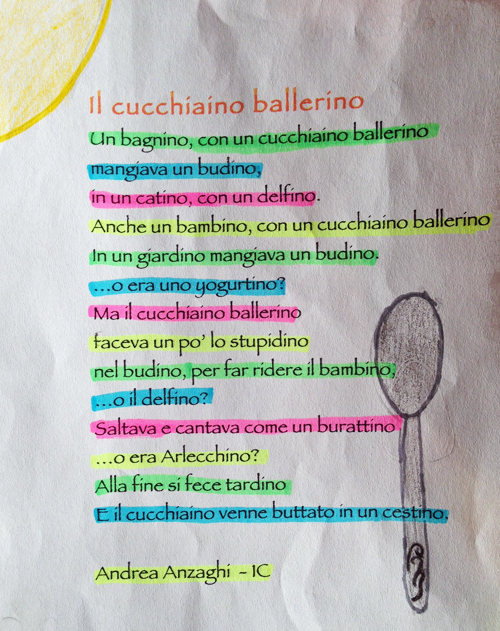 Il cucchiaino ballerino
Un bagnino, con un cucchiaino ballerino
mangiava un budino,
in un catino, con un delfino.
Anche un bambino, con un cucchiaino ballerino
In un giardino mangiava un budino.
...o era uno yogurtino?
Ma il cucchiaino ballerino
faceva un po' lo stupidino
nel budino, per far ridere il bambino,
...o il delfino?
Saltava e cantava come un burattino
...o era Arlecchino?
Alla fine si fece tardino
E il cucchiaino venne buttato in un cestino.
Andrea Anzaghi - 1C